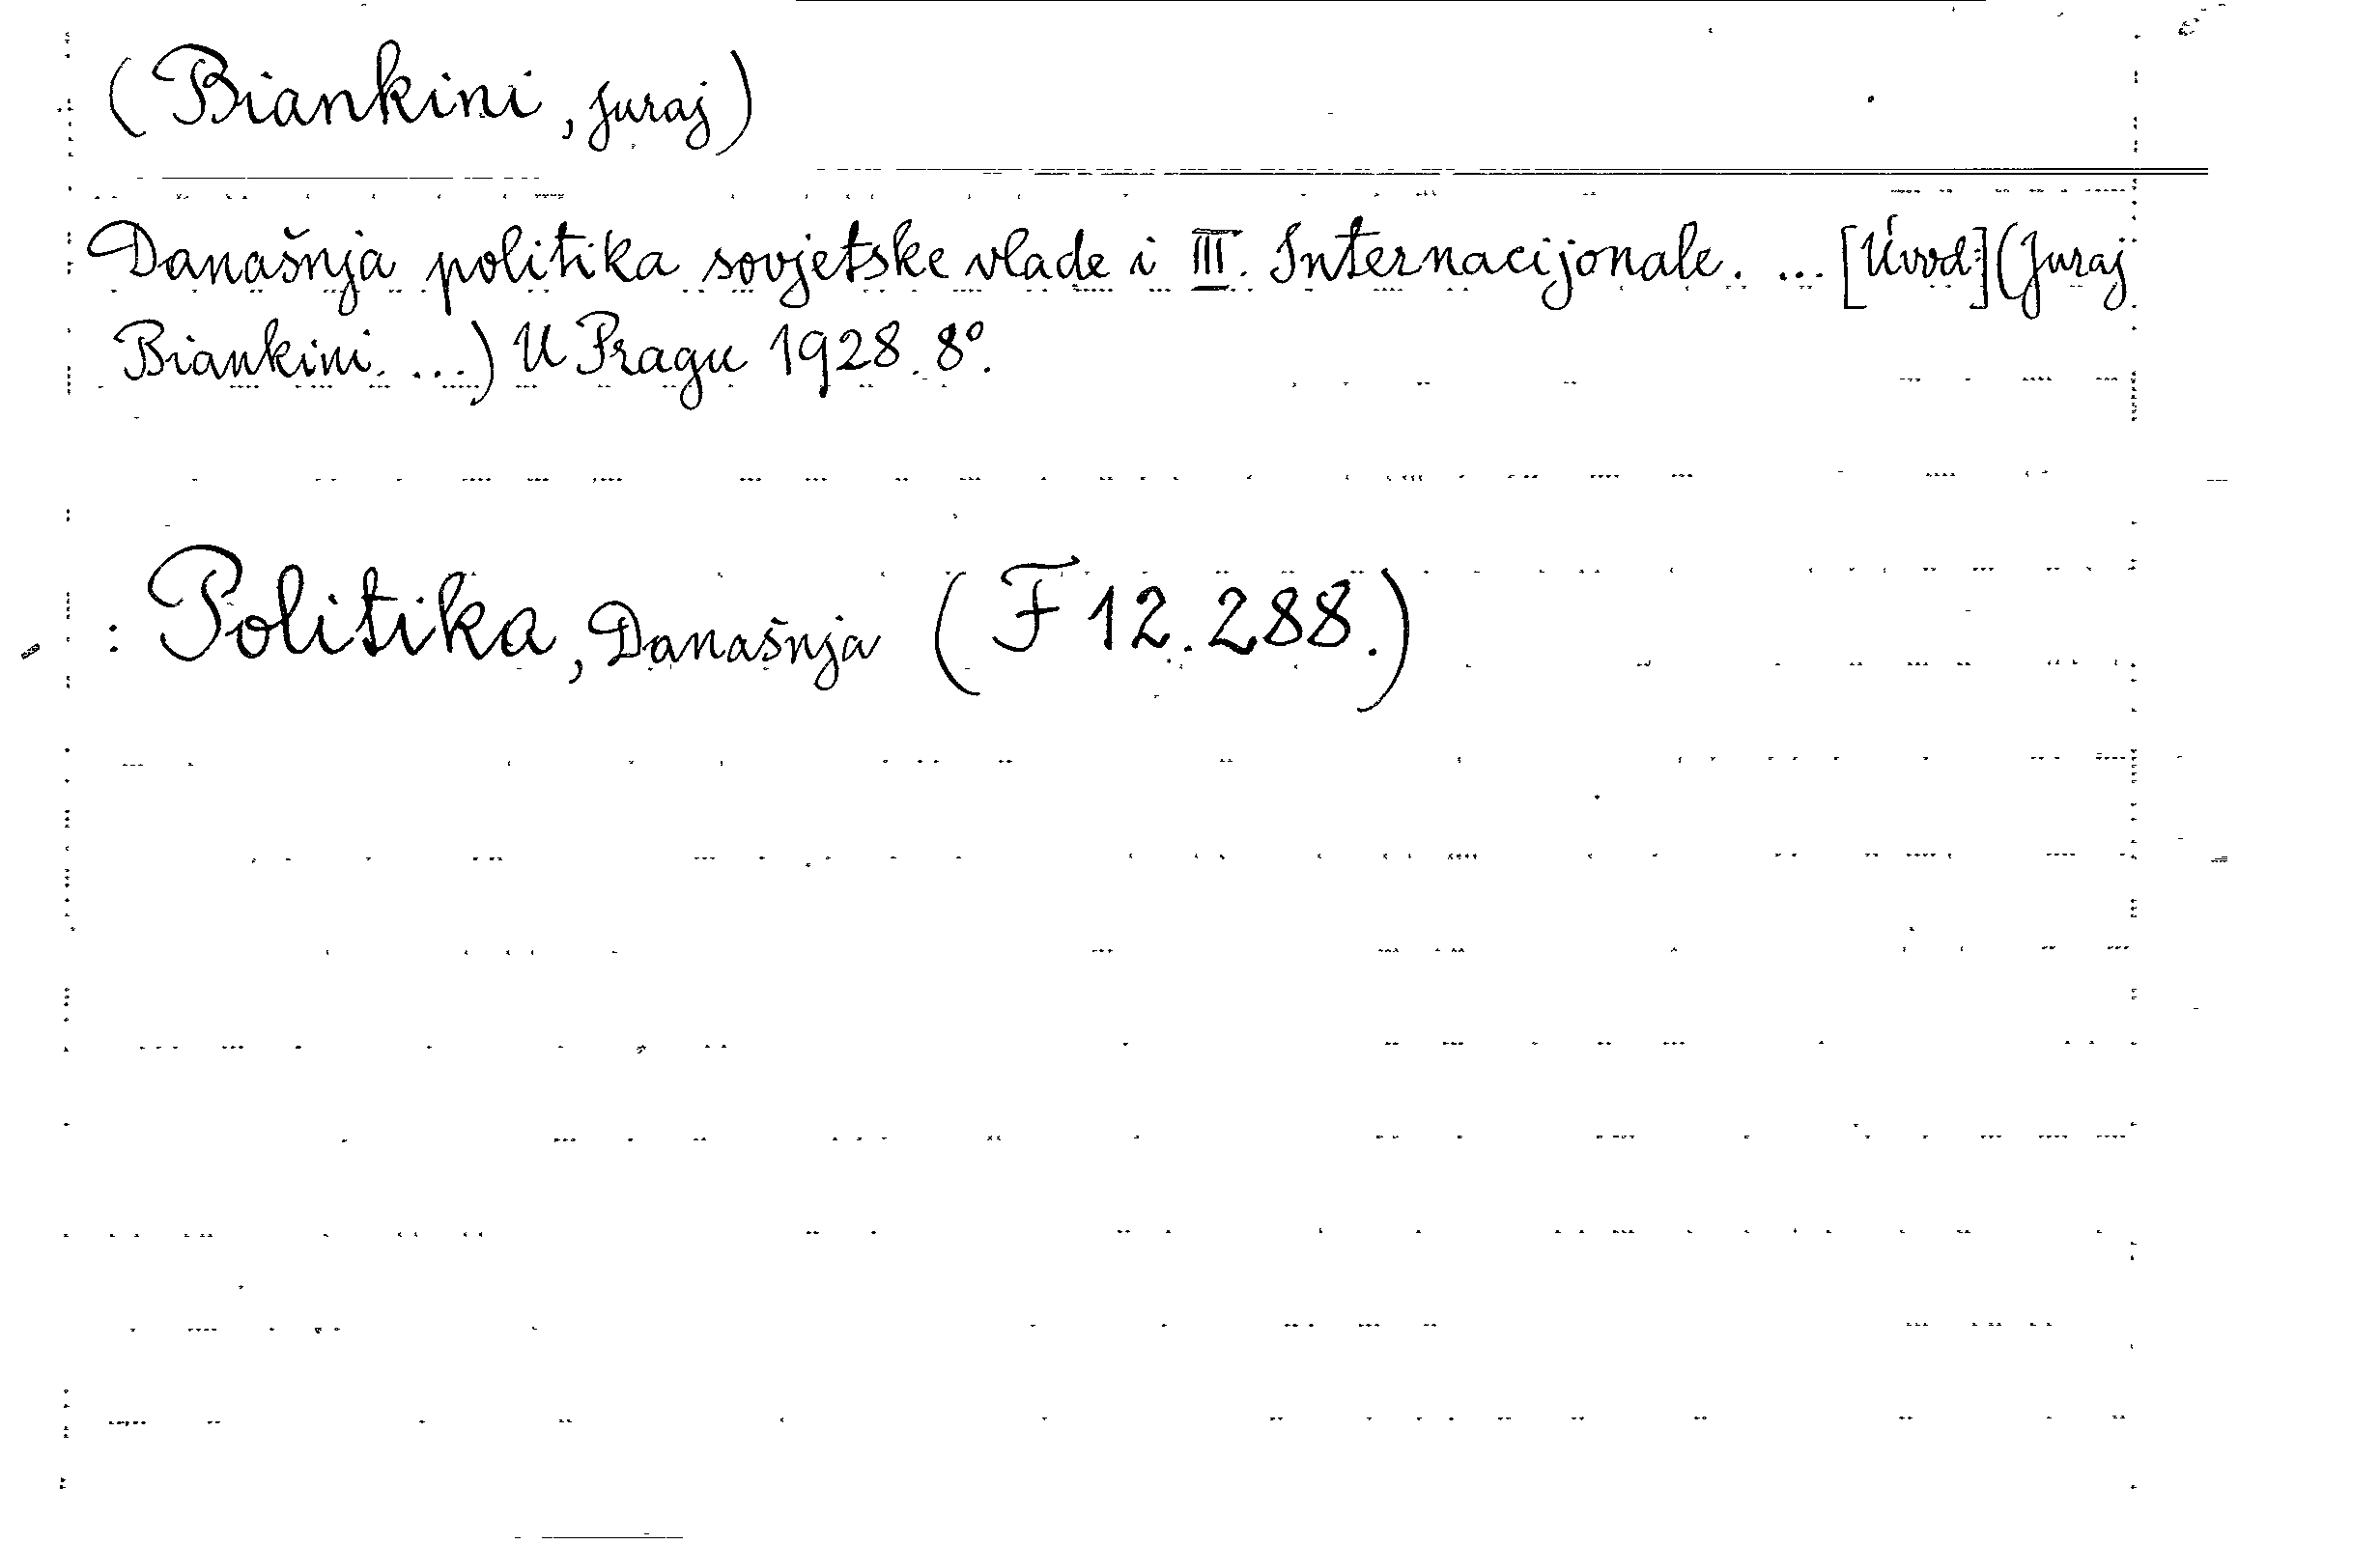 (Biankini, Juraj)
Današnja politika sovjetske vlade i III. Internacijonale. ... [Úvod:] (Juraj
Biankini. ...) U Pragu 1928. 8°.
: Politika, Današnja (F 12.288.)